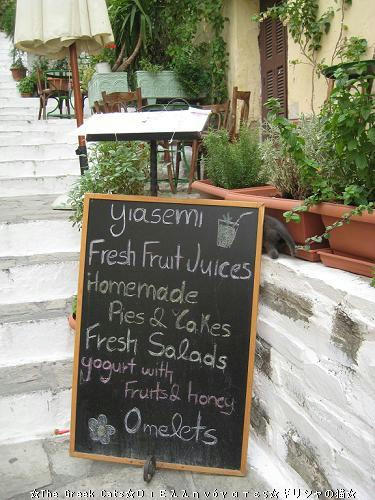 yiasemi
Fresh Fruit Juices
Homemade
Pies & Cakes
Fresh Salads
yogurt with
Fruits & honey
Omelets
☆The Greek Cats☆Οι Ελληνόγατες☆ギリシャの猫☆